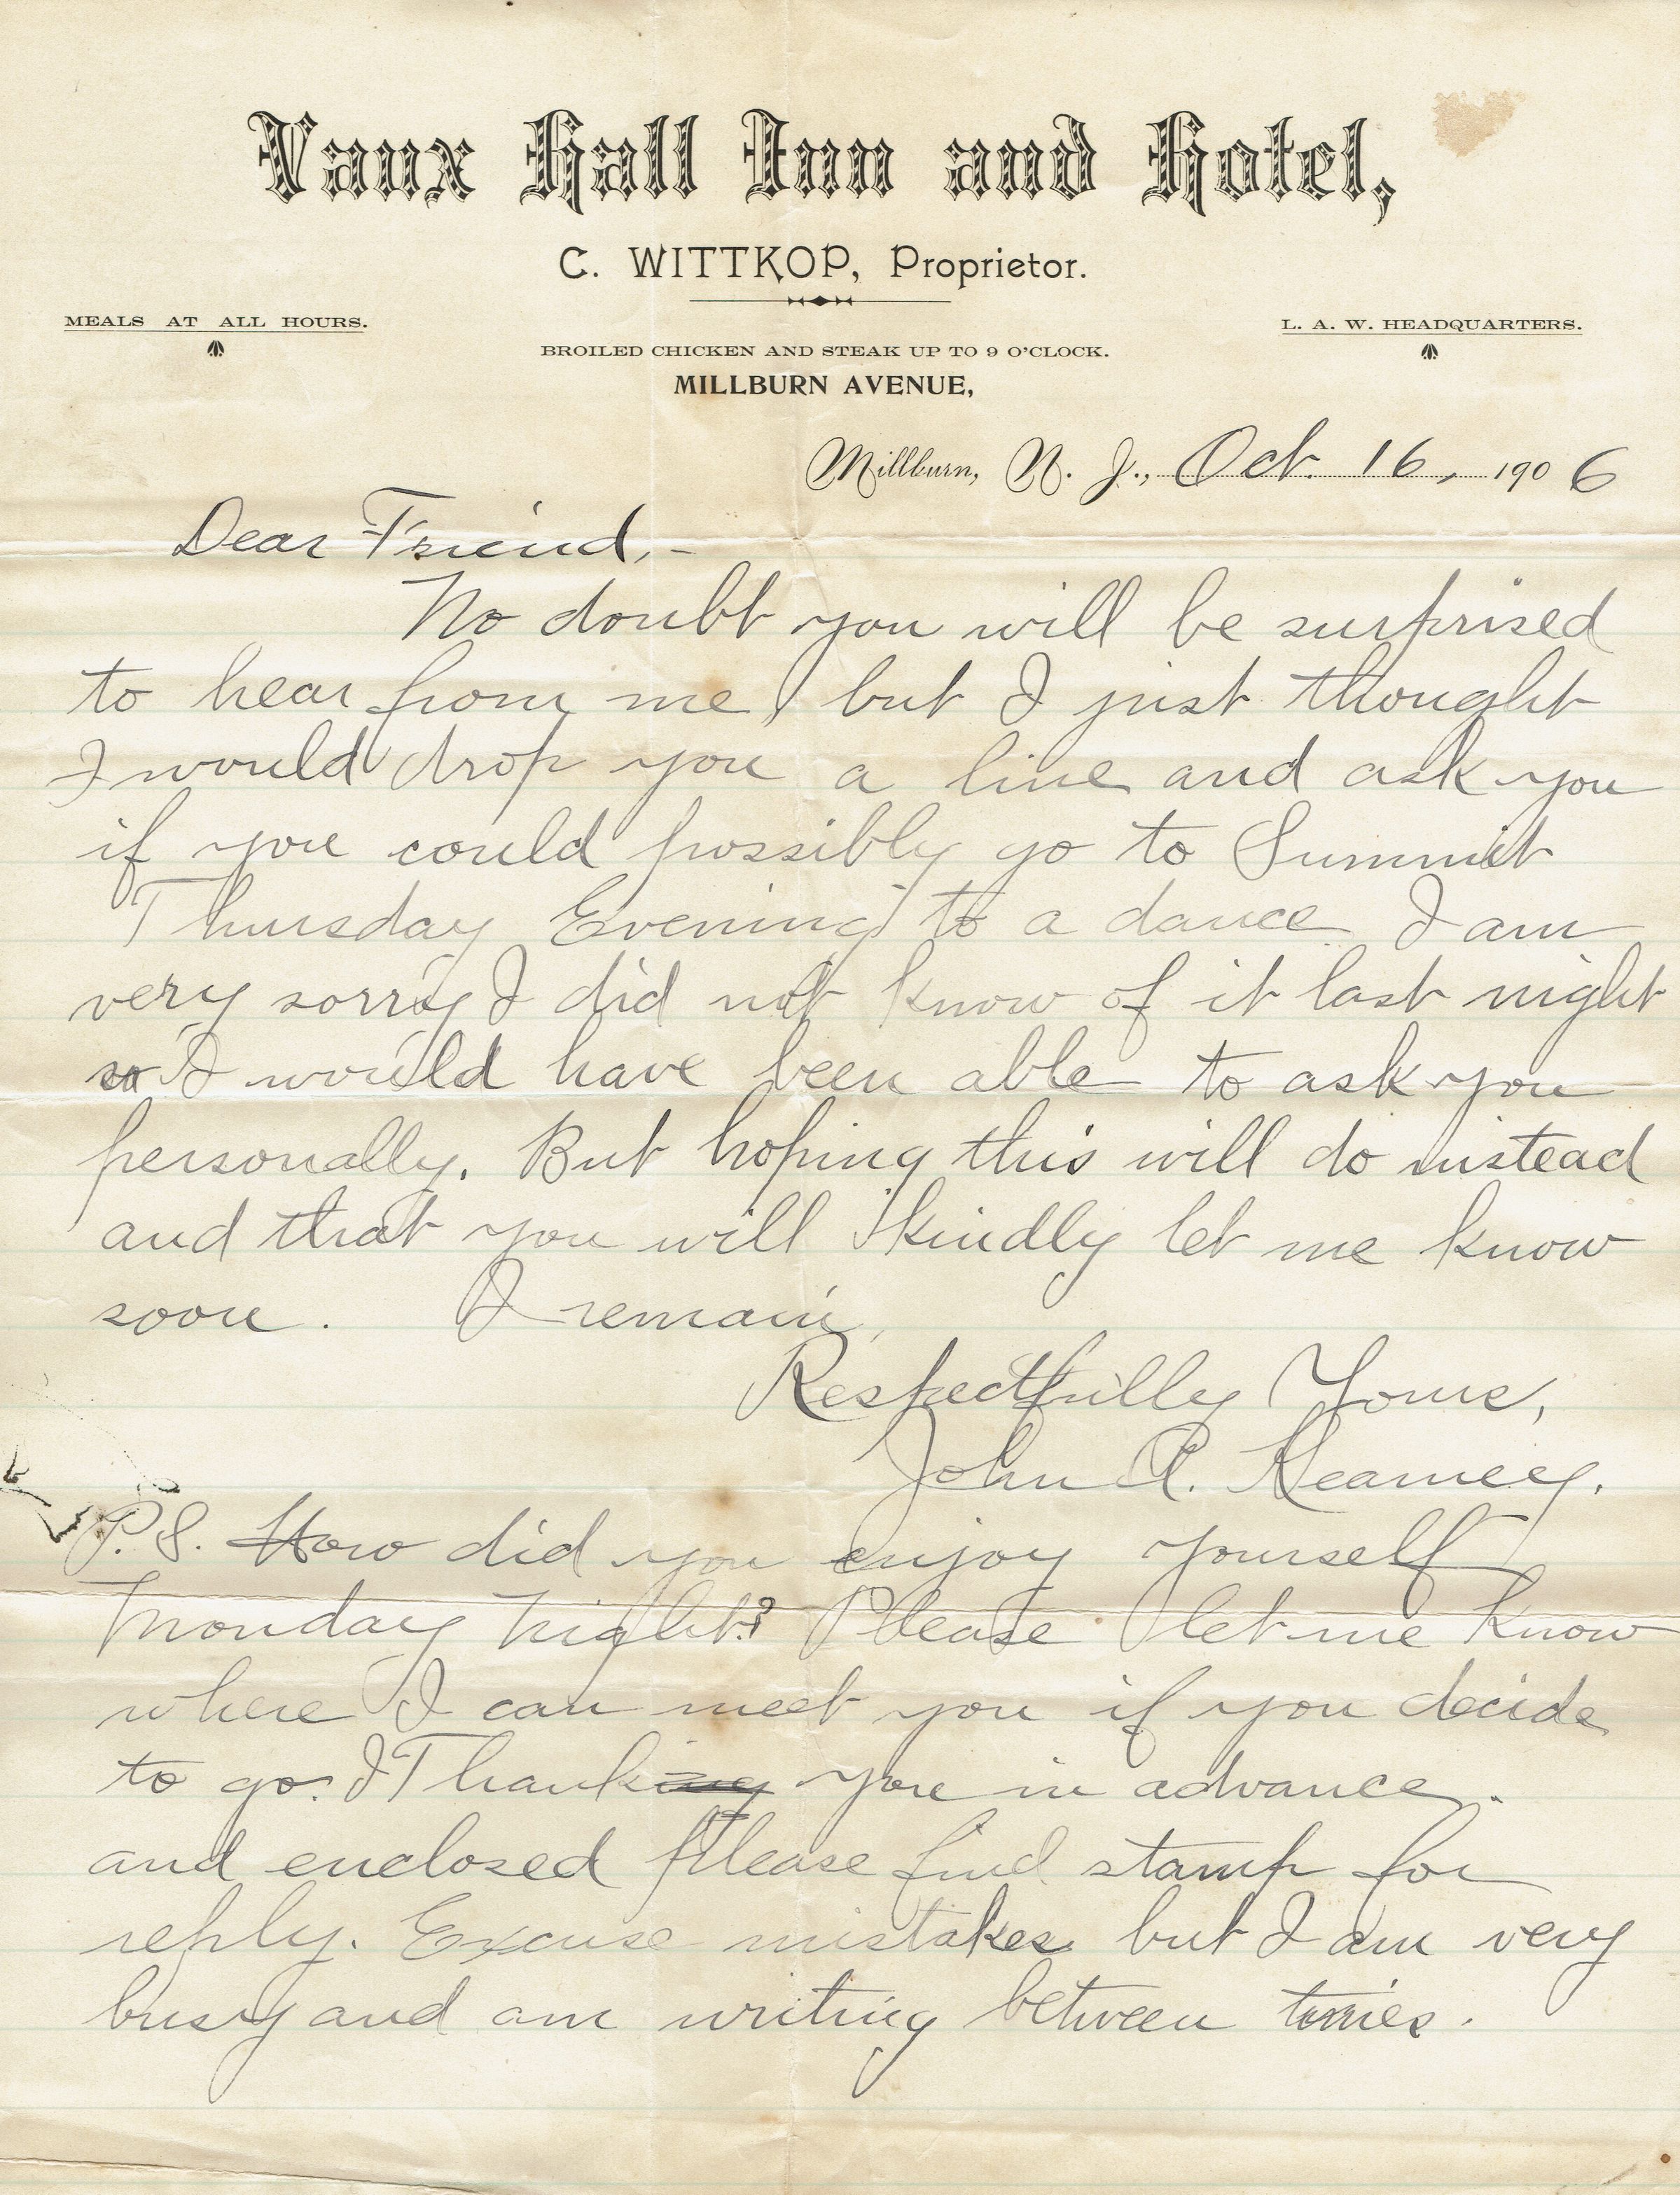 Vaux Hall Inn and Hotel,
C. WITTKOP, Proprietor.
MEALS AT ALL HOURS.
L. A. W. HEADQUARTERS.
BROILED CHICKEN AND STEAK UP TO 9 O'CLOCK.
MILLBURN AVENUE,
Millburn, N. J., Oct. 16, 1906
Dear Friend,-
No doubt you will be surprised
to hear from me, but I just thought
I would drop you a line and ask you
if you could possibly go to Summit
Thursday Evening to a dance I am
very sorry I did not know of it last night
so I would have been able to ask you
personally. But hoping this will do instead
and that you will kindly let me know
soon. I remain,
Respectfully Yours,
John A. Kearney.
P.S. How did you enjoy yourself
Monday night? Please let me know
where I can meet you if you decide
to go. I Thanking you in advance.
and enclosed please find stamp for
reply. Excuse mistakes but I am very
busy and am writing between times.